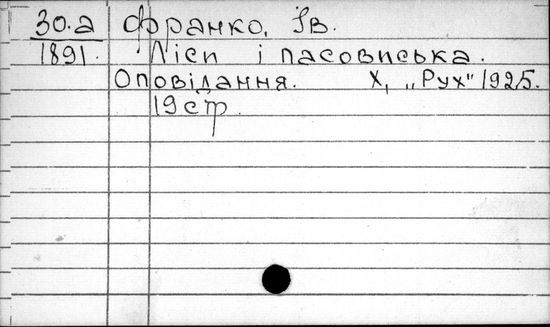 30.а Франко, Ів.
1891. Ліси і пасовиська.
Оповідання. Х, „Рух" 1925.
19 стр.